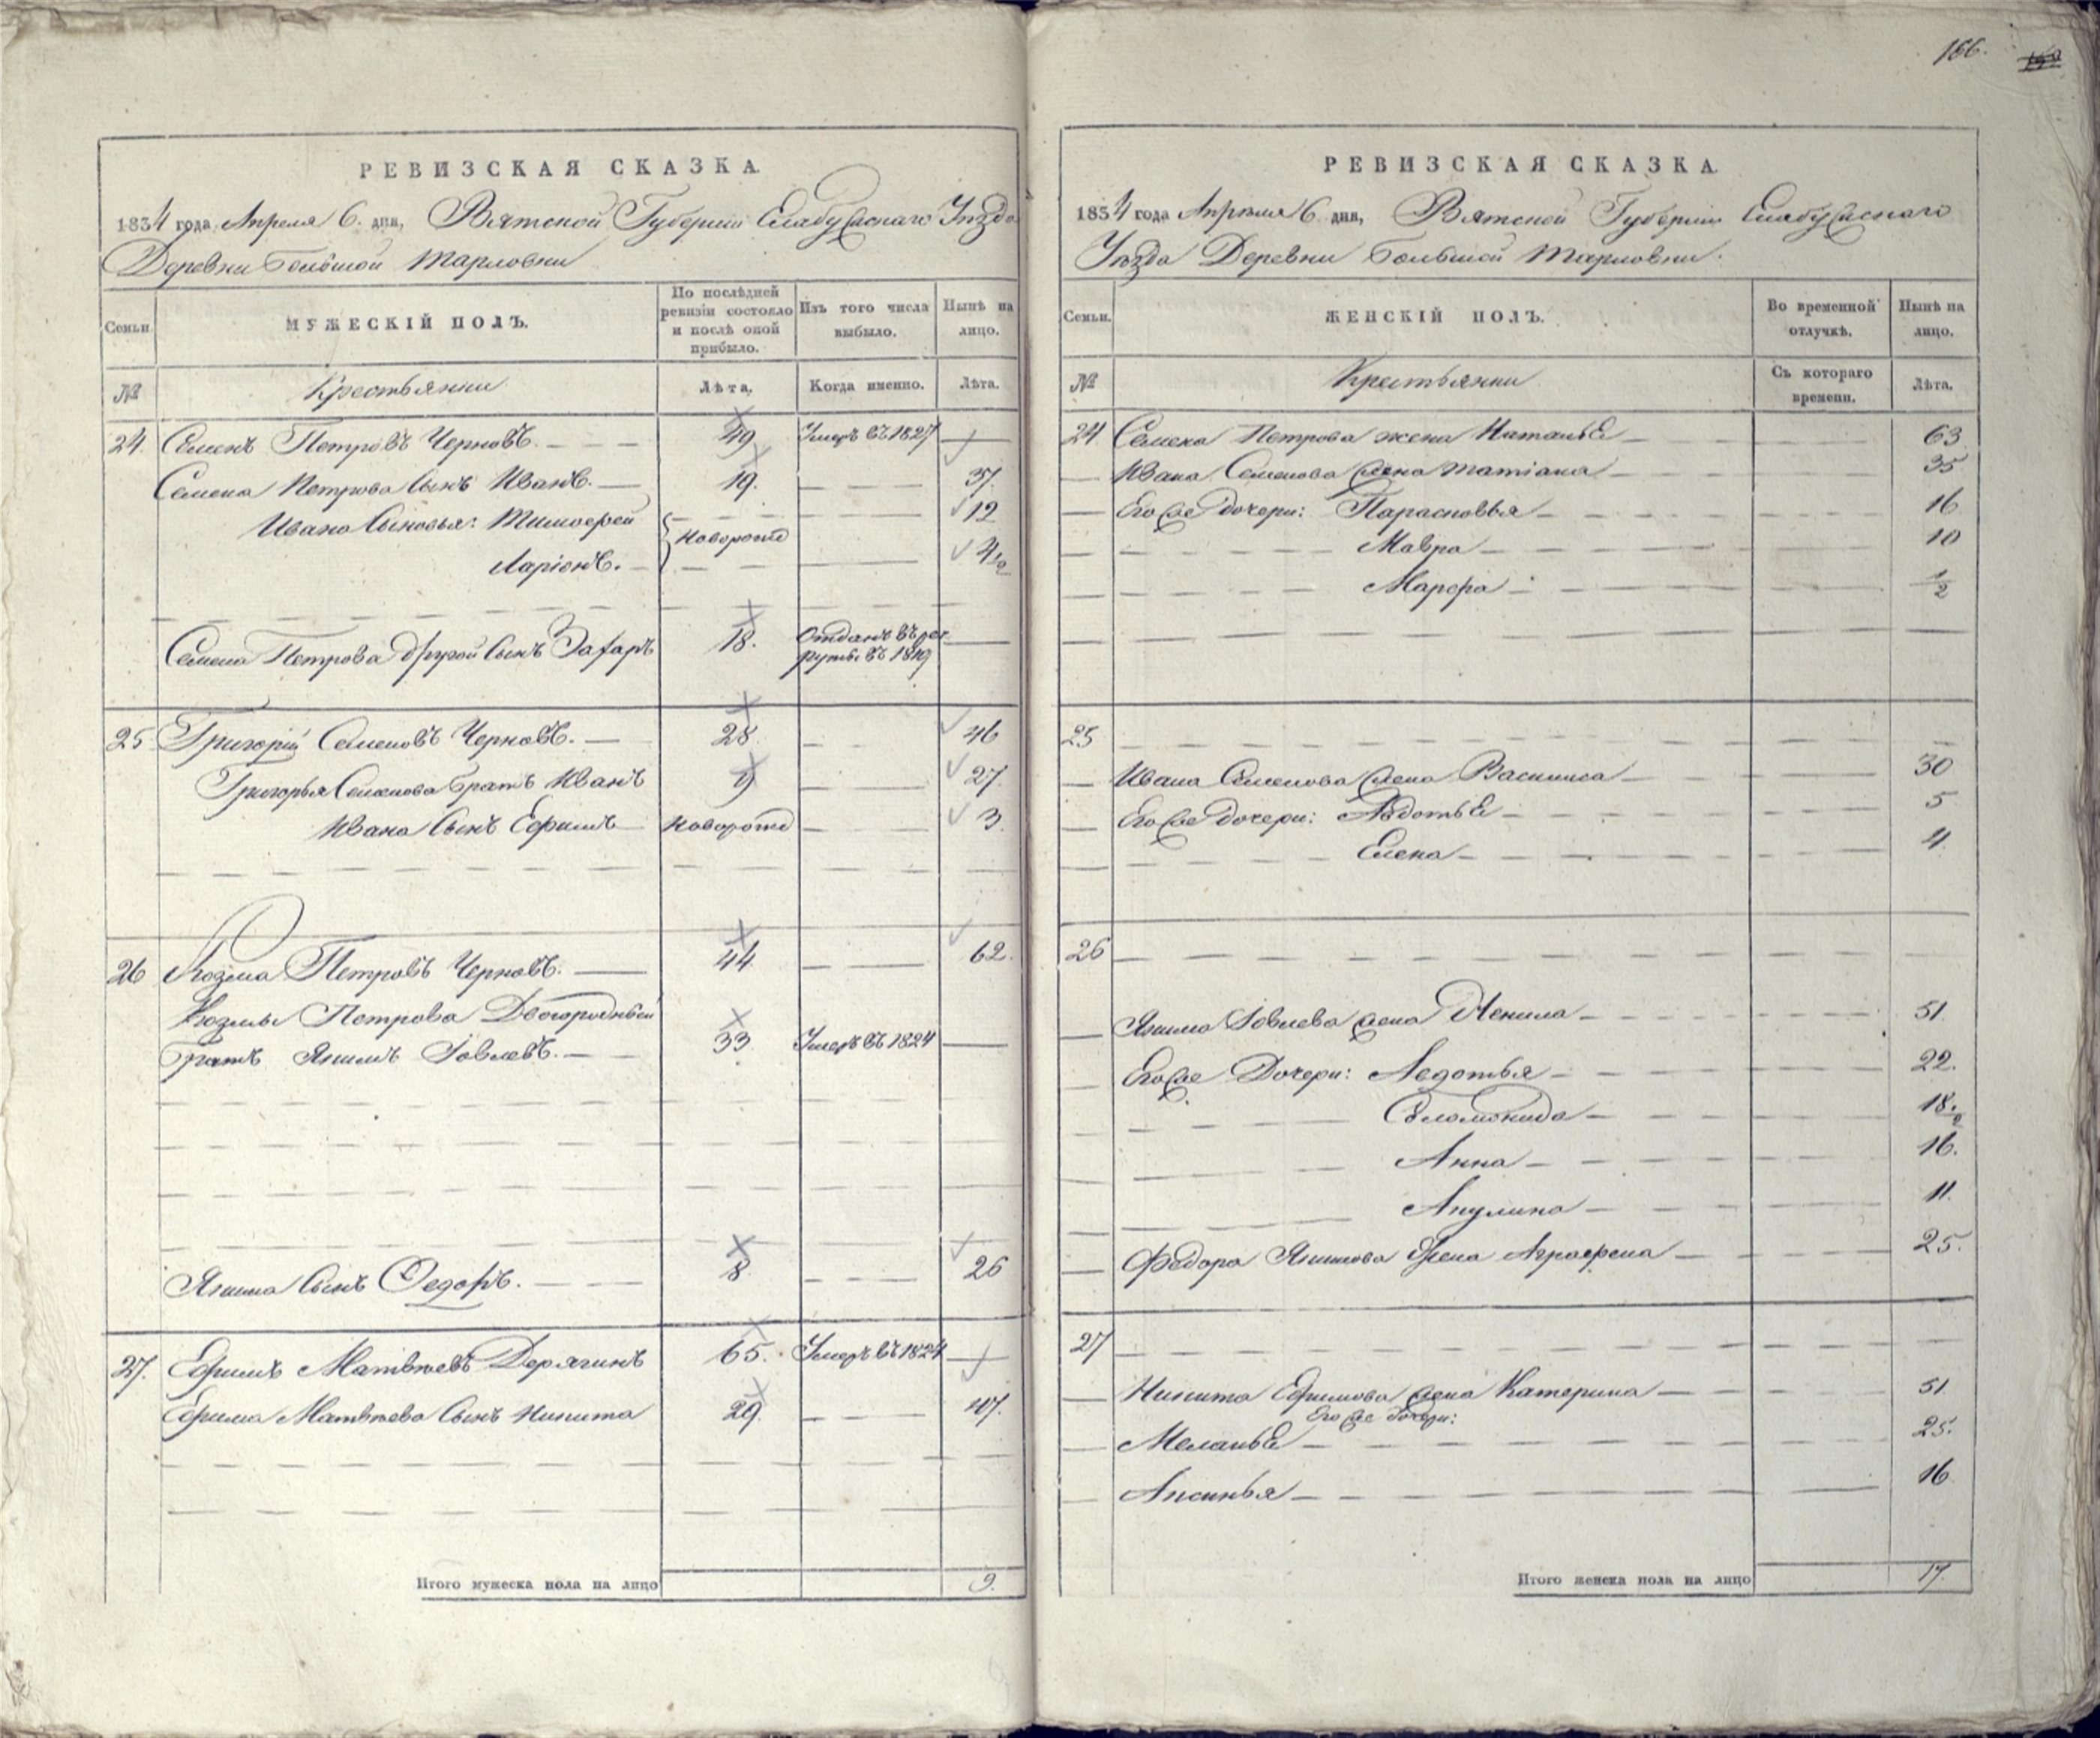 РЕВИЗСКАЯ СКАЗКА.
1834 года Апреля 6. дня, Вятской Губернии Елабужскаго Уѣзда
Деревни Большой Тарловки
Семьи.
МУЖЕСКІЙ ПОЛЪ.
По послѣдней ревизіи состояло и послѣ оной прибыло.
Изъ того числа выбыло.
Нынѣ на лицо.
№ Крестьянни Лѣта. Когда именно. Лѣта.
24. Семенъ Петровъ Черновъ. 49 Умеръ въ 1827
Семена Петрова сынъ Иванъ. 19. 37.
Ивана сыновья: Тимофей 12
новорожд
Ларіонъ. 4 1/2
Семена Петрова другой сынъ Захаръ 18. Отданъ въ рек
руты въ 1819
25 Григорій Семеновъ Черновъ. 28. 46
Григорья Семенова братъ Иванъ 9 27
Ивана сынъ Ефимъ новорожд 3.
26 Козма Петровъ Черновъ. 44 62.
Козмы Петрова Двоюродный
братъ Якимъ Іовлевъ. 33. Умеръ въ 1824
Якима сынъ Ѳедоръ. 8. 26
27. Ефимъ Матвѣевъ Дерягинъ 65. Умеръ въ 1824
Ефима Матвѣева сынъ Никита 29. 47.
Итого мужеска пола на лицо 9.
166.
РЕВИЗСКАЯ СКАЗКА.
1834 года Апреля 6 дня, Вятской Губерніи Елабужскаго
Уѣзда Деревни Большой Тарловки.
Семьи.
ЖЕНСКІЙ ПОЛЪ.
Во временной отлучкѣ.
Нынѣ на лицо.
№ Крестьянки Съ котораго времени. Лѣта.
24 Семена Петрова жена Наталья 63
Ивана Семенова жена Татіана 35
Его же дочери: Парасковья 16
Мавра 10
Марфа 1/2
25
Ивана Семенова жена Василиса 30
Его же дочери: Авдотья 5
Елена 4
26
Якима Іовлева жена Ненила 51
Его же Дочери: Ледотья 22.
Соломонида 18. 1/2
Анна 16.
Акулина 11.
Федора Якимова жена Аграфена 25.
27
Никита Ефимова жена Катерина 51
Его же дочери:
Меланья 25.
Аксинья 16
Итого женска пола на лицо 17